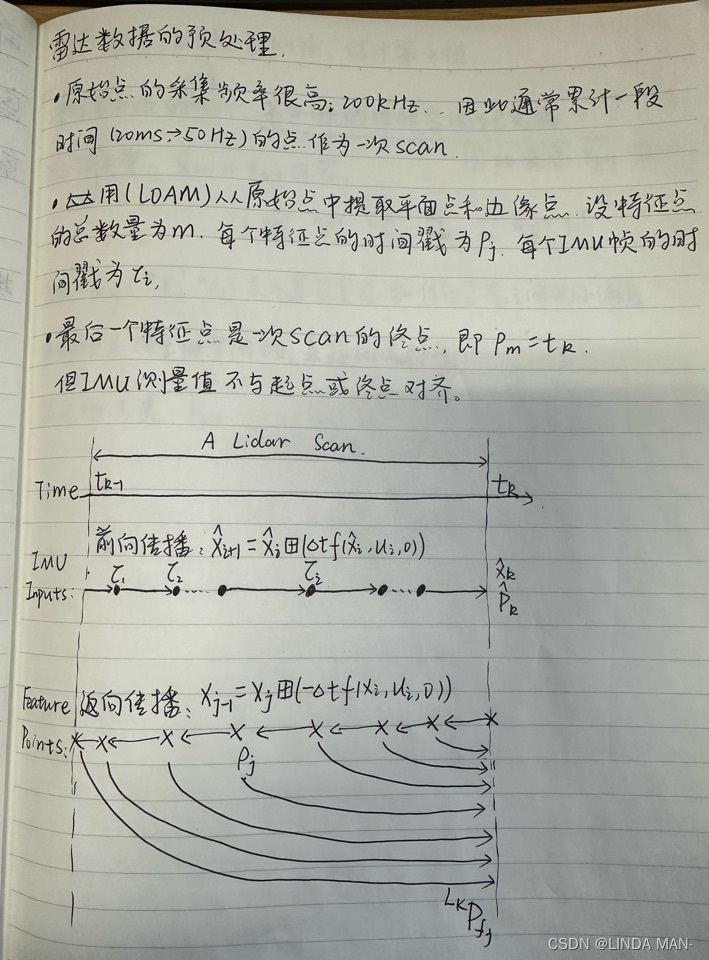 雷达数据的预处理.
·原始点的采集频率很高: 200kHz. 因此通常累计一段
时间(20ms→50Hz)的点作为一次scan.
·用(LOAM)从原始点中提取平面点和边缘点. 设特征点
的总数量为m. 每个特征点的时间戳为ρj. 每个IMU帧的时
间戳为τi,
·最后一个特征点是一次scan的终点, 即ρm=tk.
但IMU测量值不与起点或终点对齐。
A Lidar Scan.
Time tk-1 tk
前向传播: x̂i+1=x̂i⊞(Δtf(x̂i,ui,0))
IMU
Inputs: τ1 τ2 ..... τi ... x̂k
P̂k
Feature 返向传播: xj-1=xj⊞(-Δtf(xi,ui,0))
Points:
ρj
LkPfj
CSDN @LINDA MAN-